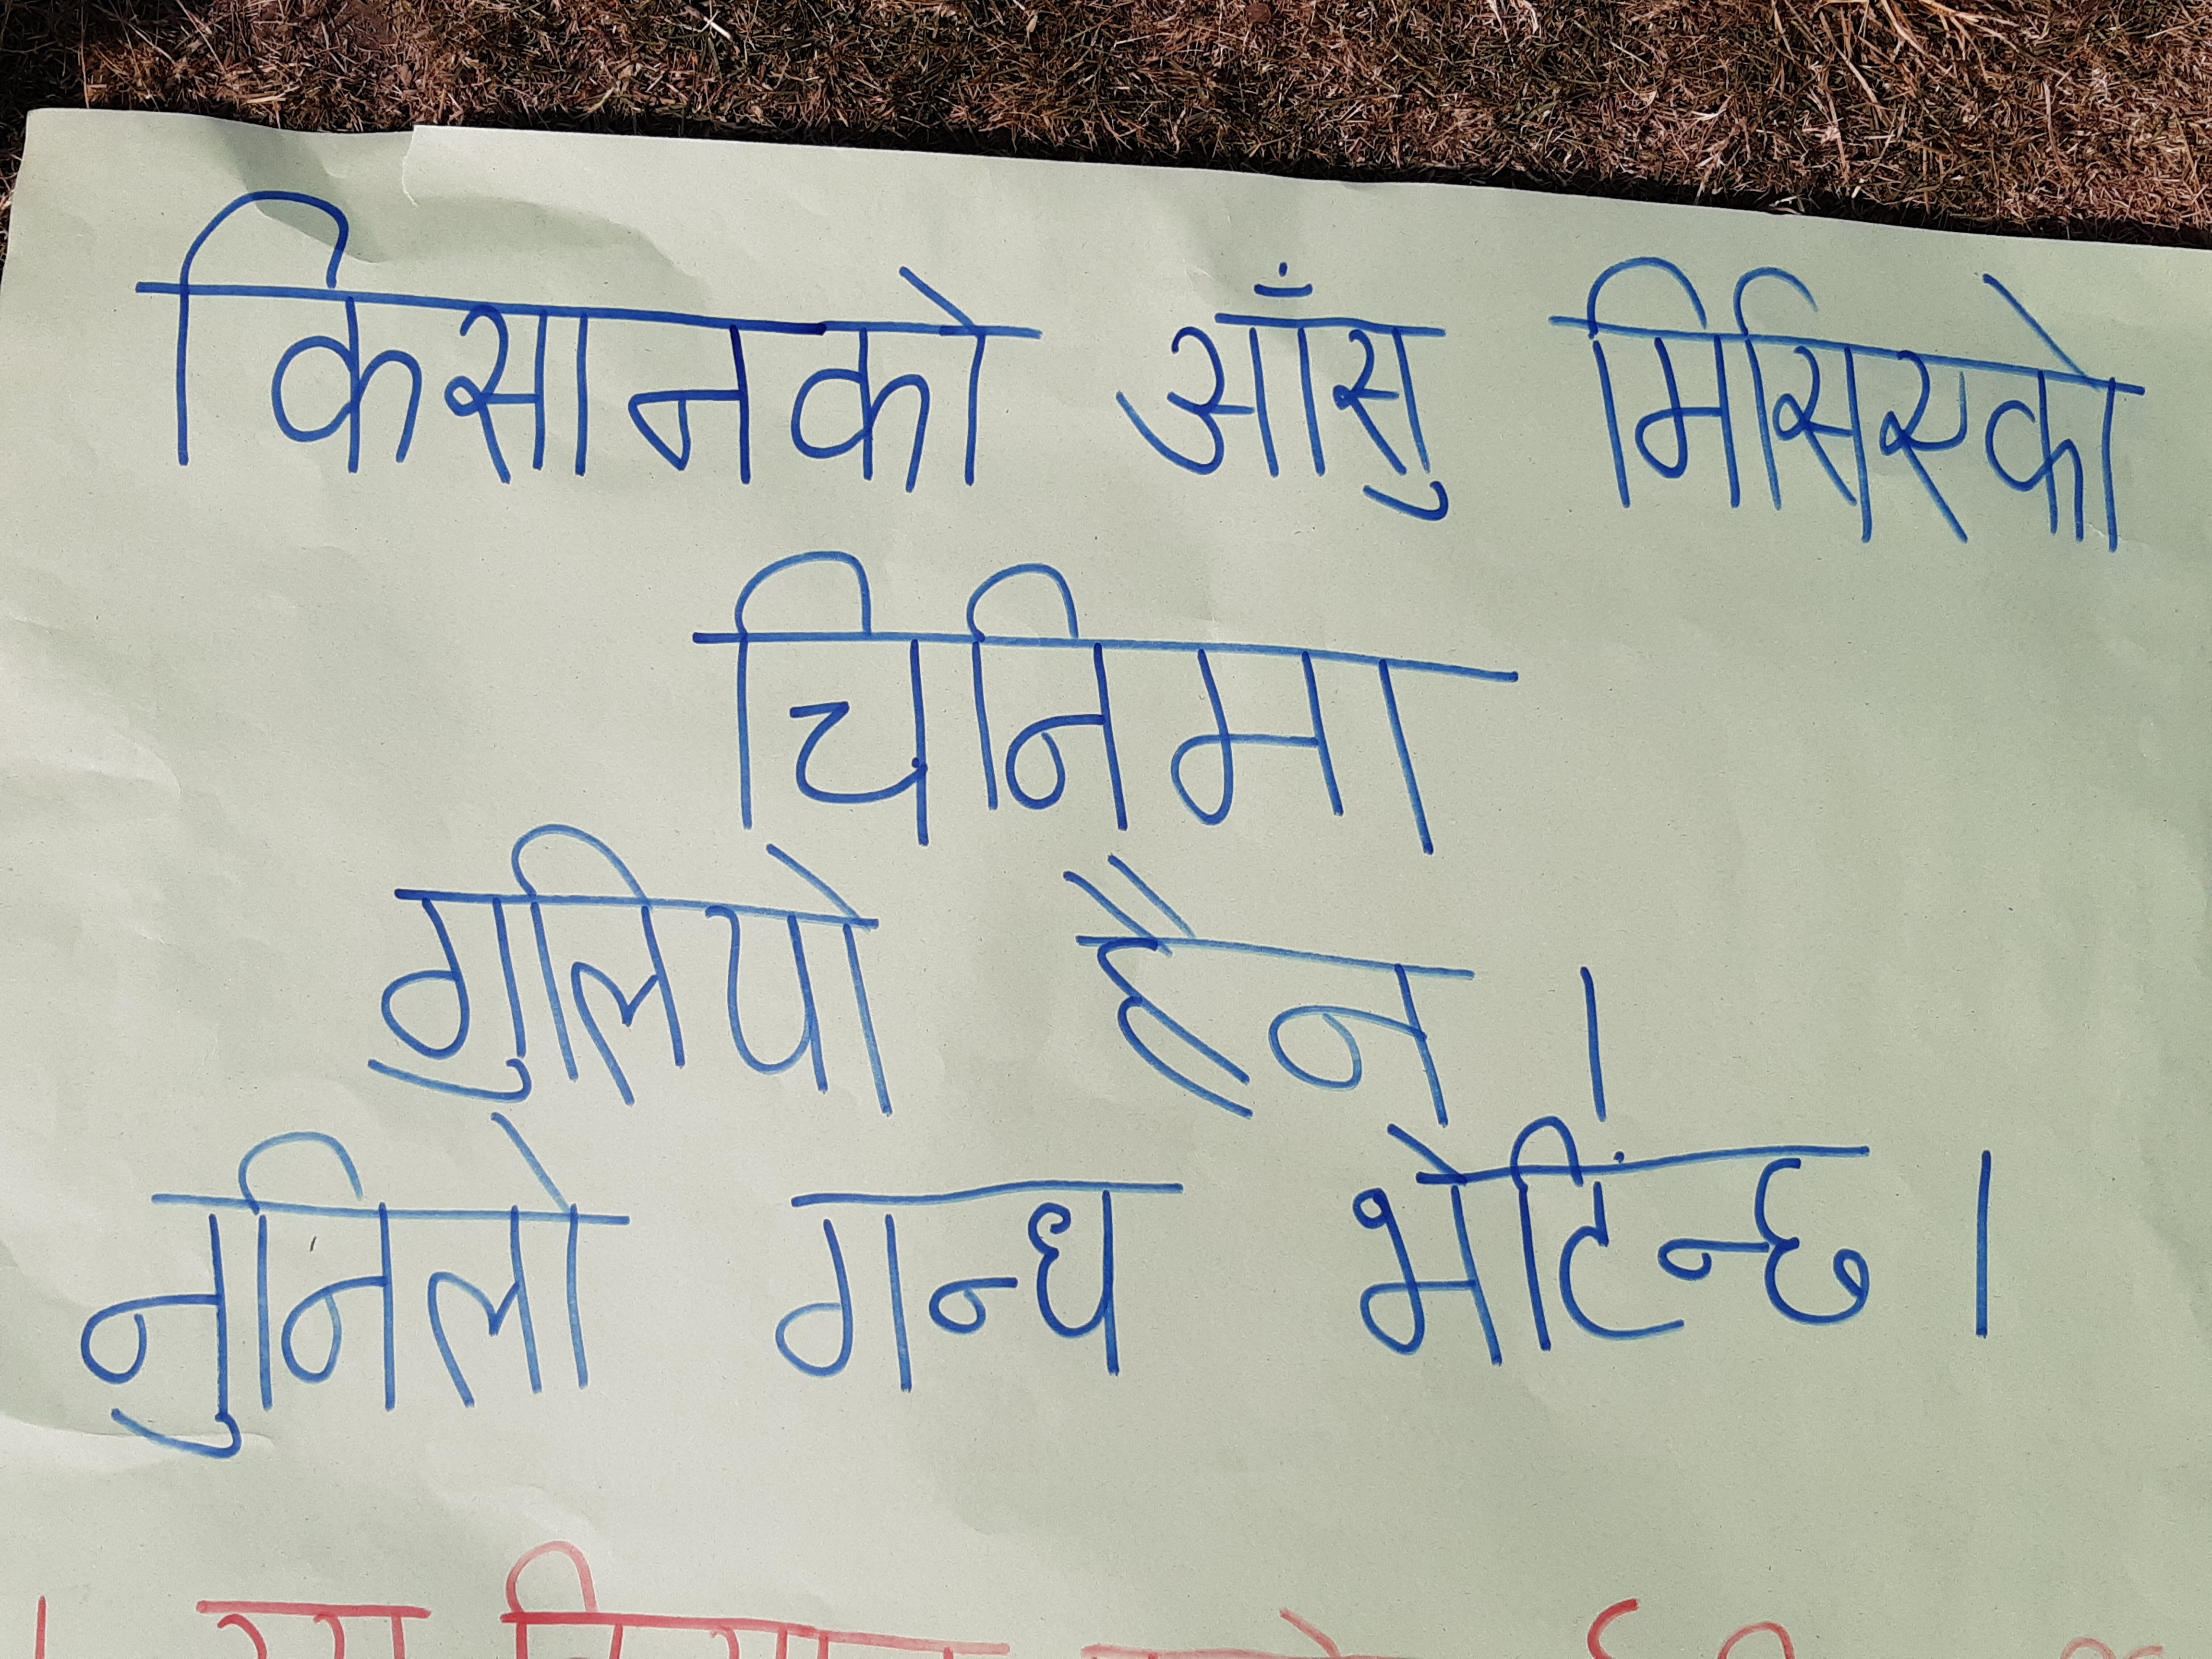 किसानको आँसु मिसिएको
चिनिमा
गुलियो हैन ।
नुनिलो गन्ध भेटिन्छ ।